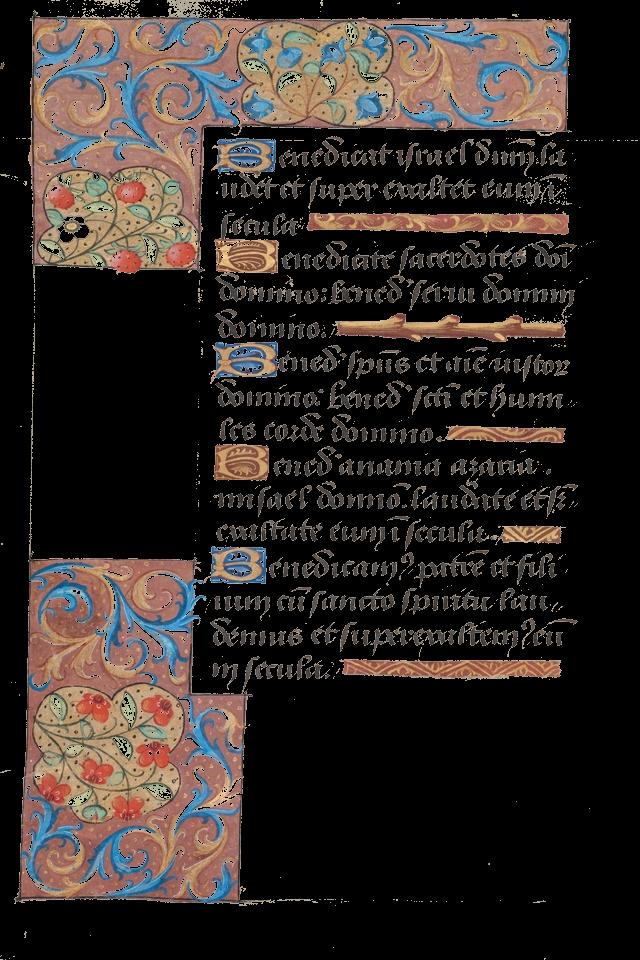 Benedicat israel dnm̄. la
udet et super exaltet eum ī
secula
Benedicite sacerdotes doī
domino: bened' serui domini
domino.
Bened' spūs et aīe iustor
domino: bened' sctī et humi
les corde domino.
Bened' anania azaria.
misael domīo. laudate et sr̄
exaltate eum ī secula.
Benedicam⁹ patrē et fili
ium cū sancto spiritu lau
demus et superexaltem⁹ eū
in secula.